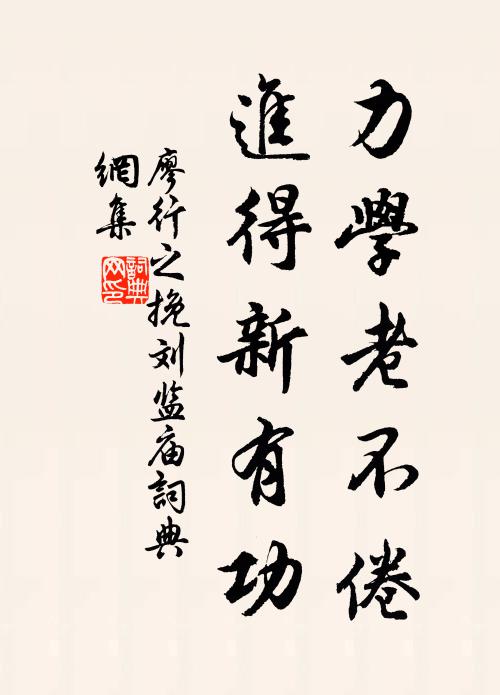 力學老不倦
進得新有功
廖行之挽刘监庙詞典
網集
詞典
网印